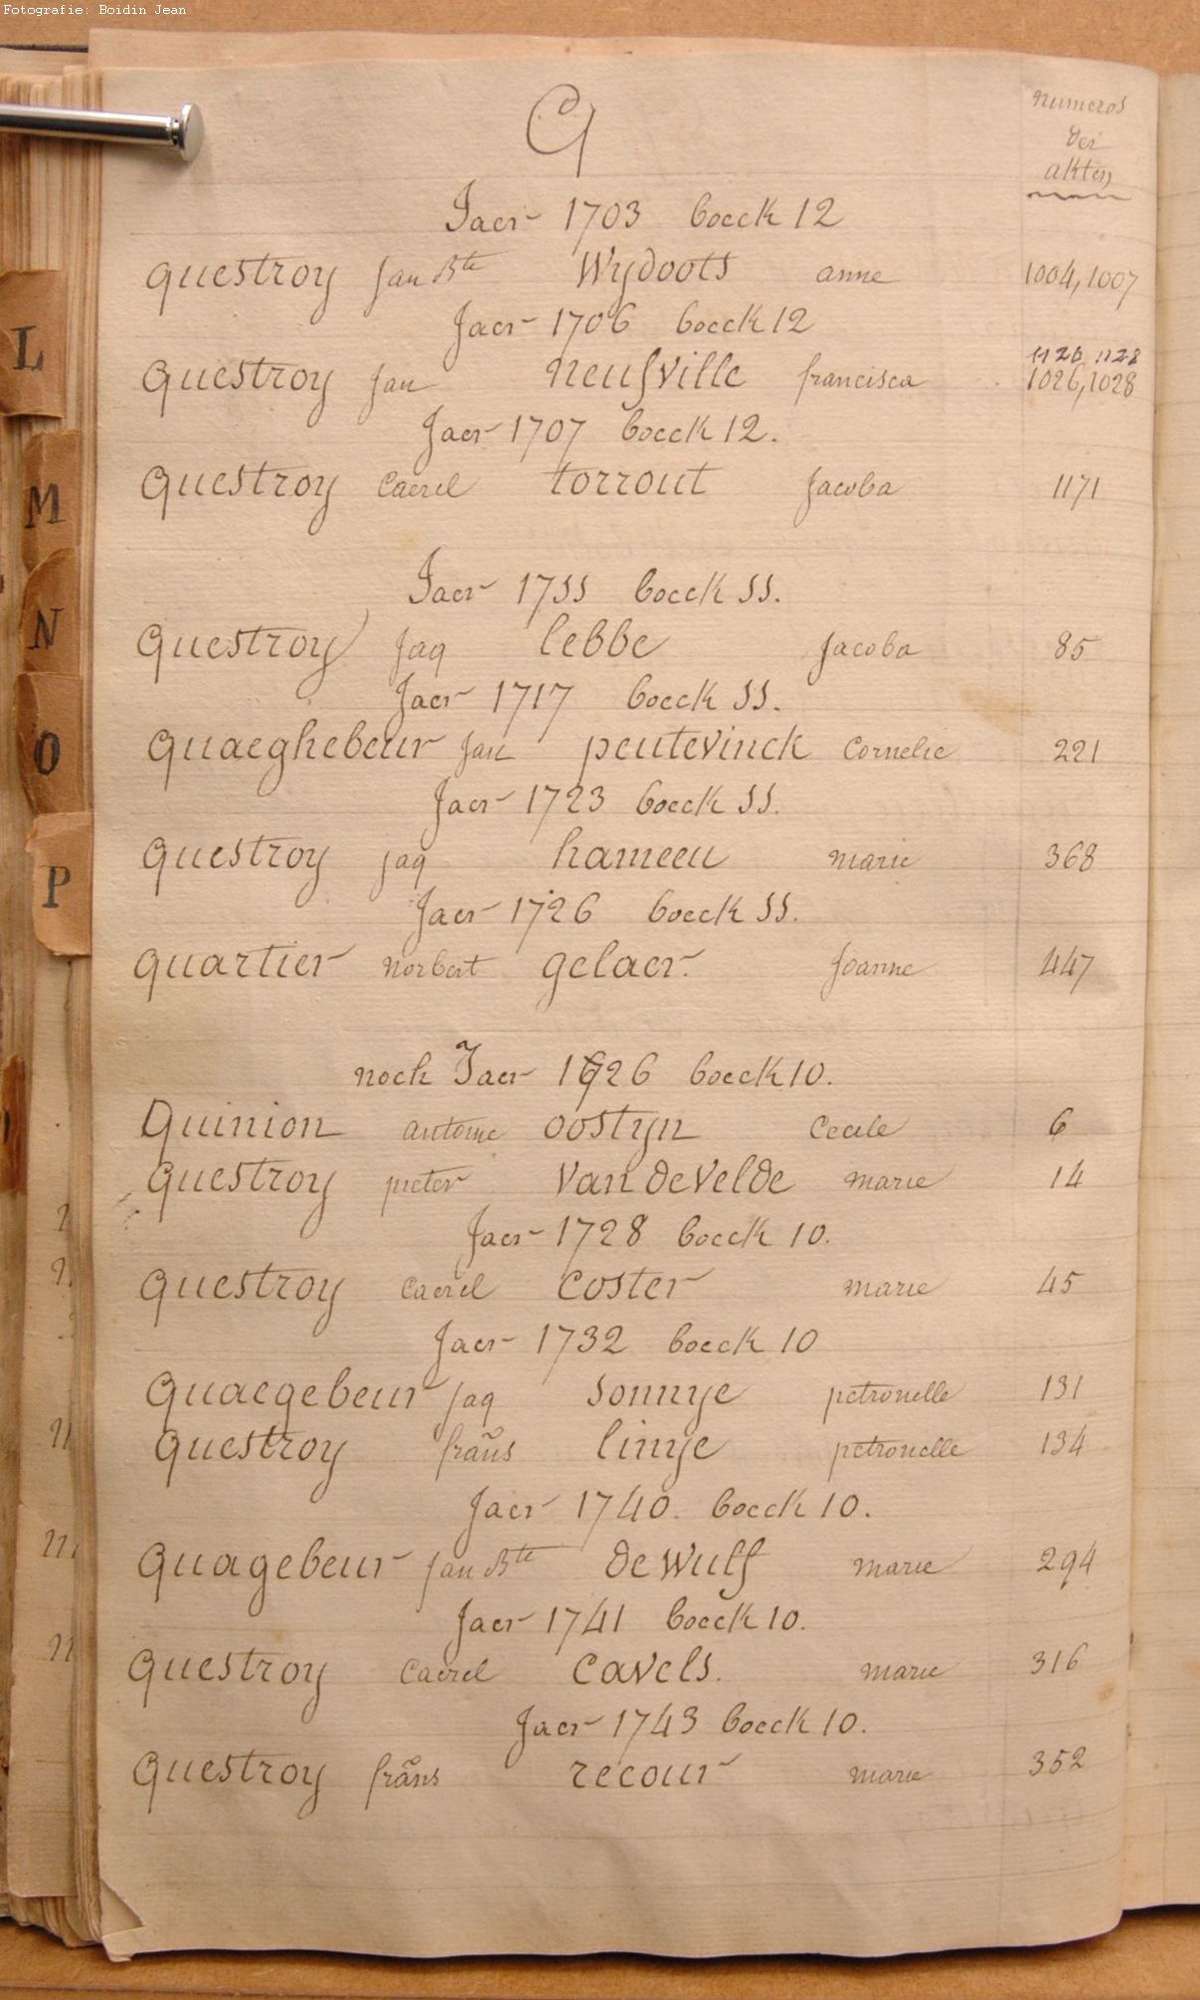 Fotografie: Boidin Jean
Q
numeros
der
akten
Jaer 1703 boeck 12
questroy Jan Bte Wydoots anne 1004, 1007
Jaer 1706 boeck 12
1126, 1128
questroy Jan neufville francisca 1026, 1028
Jaer 1707 boeck 12.
questroy Caerel torrout Jacoba 1171
Jaer 1755 boeck 55.
questroy Jaq lebbe Jacoba 85
Jaer 1717 boeck 55.
quaeghebeur Jan peutevinck Cornelie 221
Jaer 1723 boeck 55.
questroy jaq hameeu marie 368
Jaer 1726 boeck 55.
quartier norbert gelaer. Joanne 447
noch Jaer 1726 boeck 10.
Quinion antoine oostyn Cecile 6
questroy pieter van de velde marie 14
Jaer 1728 boeck 10.
questroy Caerel coster marie 45
Jaer 1732 boeck 10
quaegebeur jaq sonnye petronelle 131
questroy frans linye petronelle 134
Jaer 1740. boeck 10.
quagebeur Jan Bte de wulf marie 294
Jaer 1741 boeck 10.
questroy Caerel cavels. marie 316
Jaer 1743 boeck 10.
questroy frans recour marie 352
L
M
N
O
P